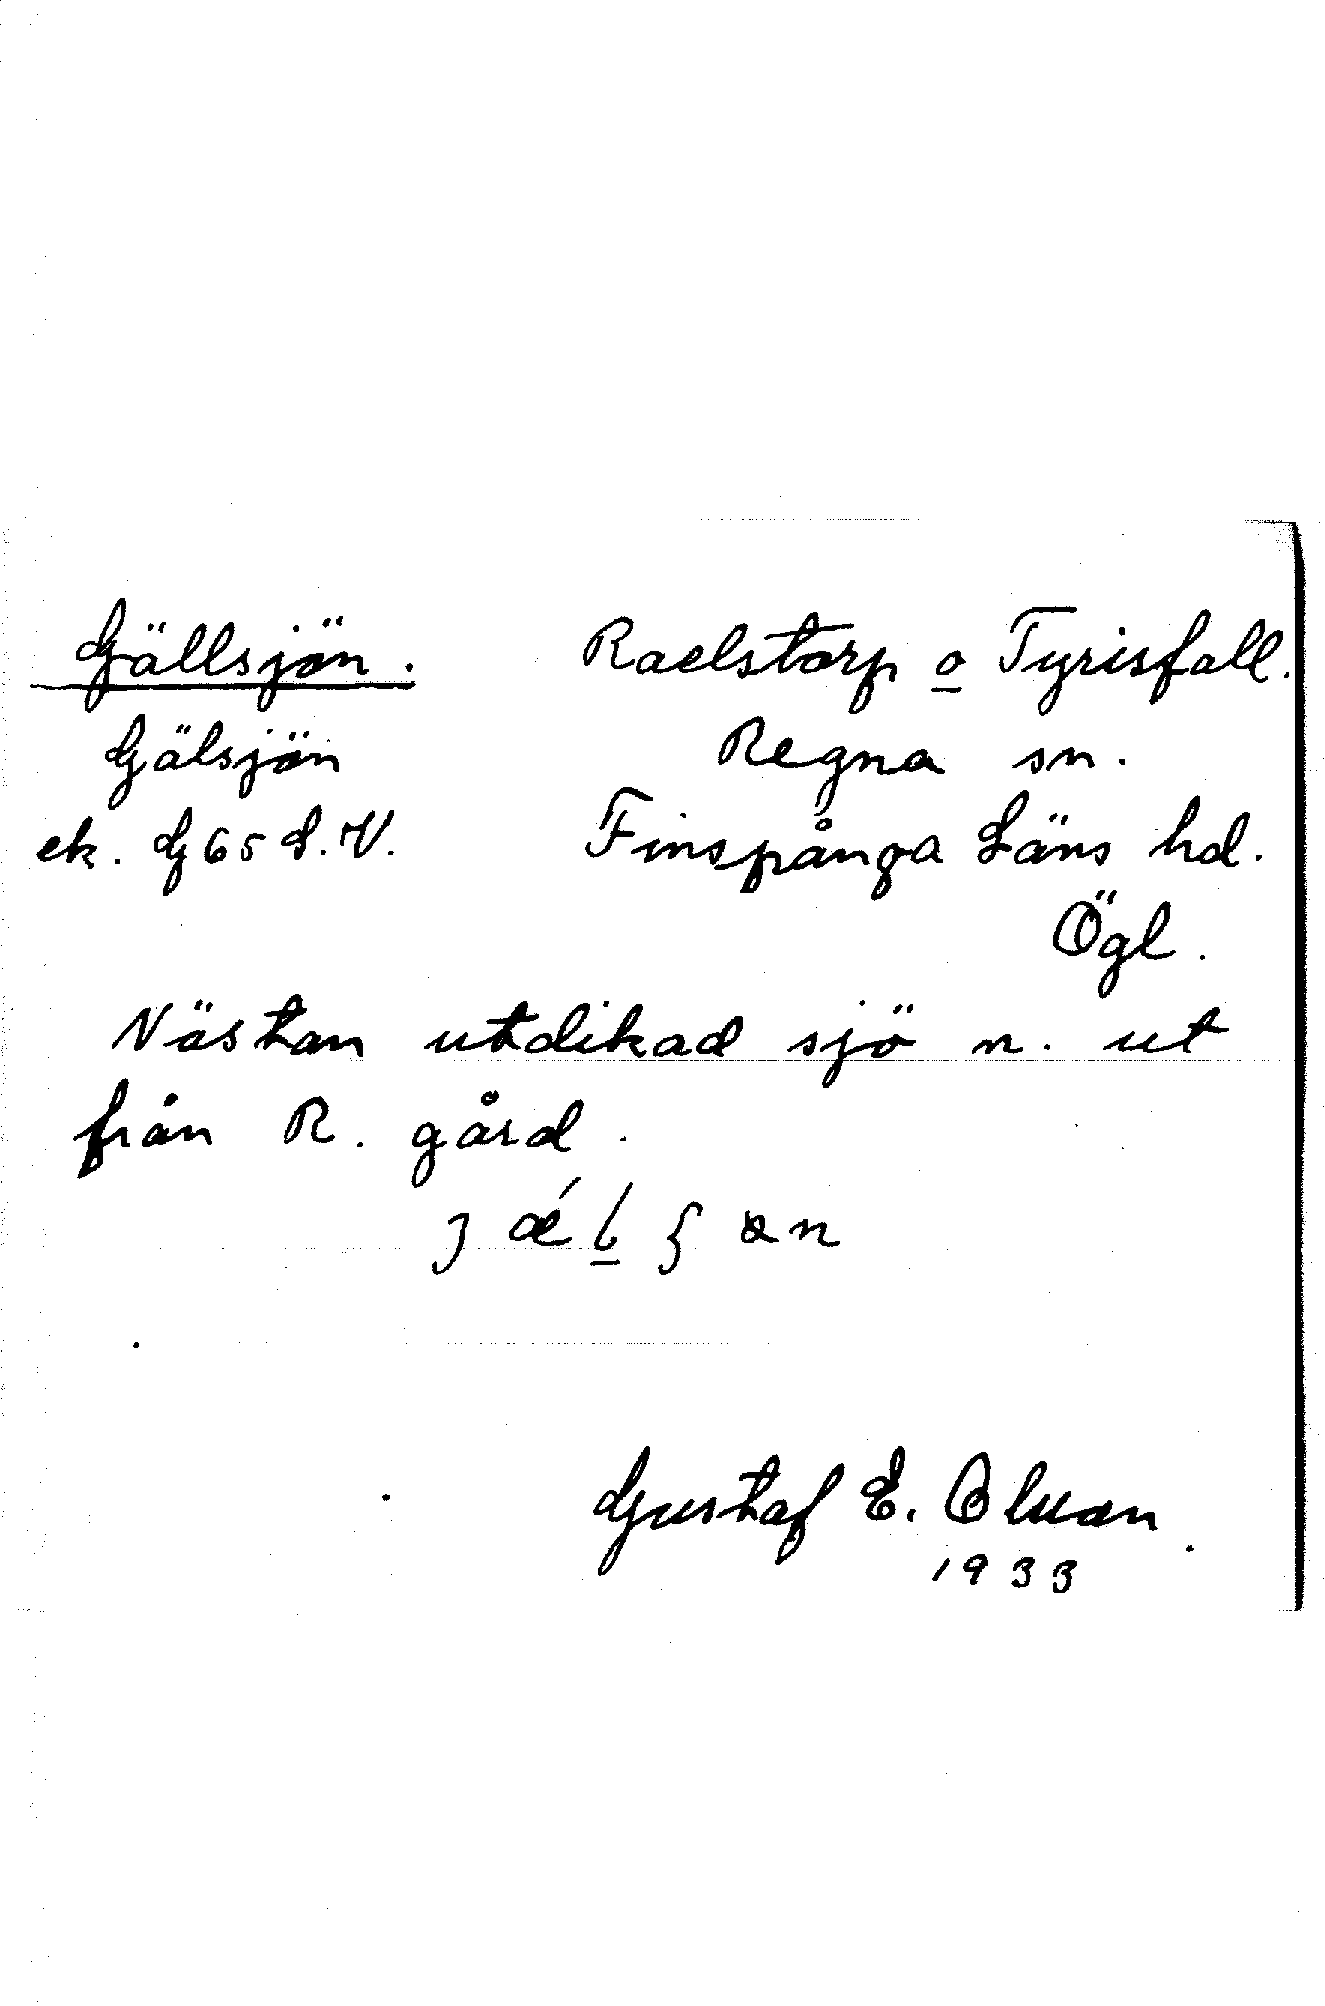 Gällsjön.
Raelstorp o Tyrisfall.
Gälsjön
Regna sn.
ek. G65 S.V.
Finspånga Läns hd.
Ögl.
Nästan utdikad sjö n. ut
från R. gård.
Gustaf E.
1933